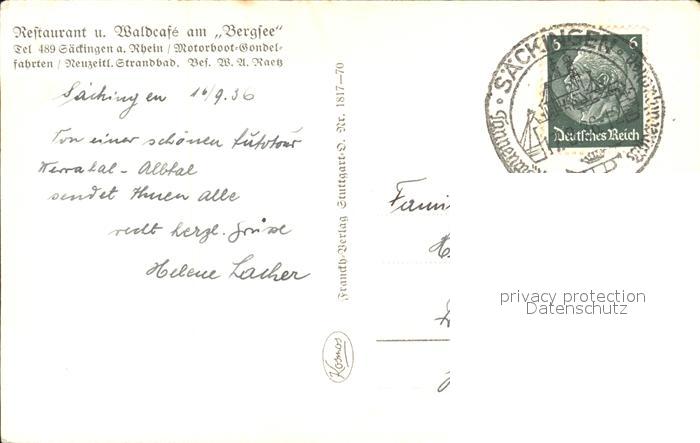 Restaurant u. Waldcafé am „Bergsee"
Tel 489 Säckingen a. Rhein / Motorboot-Gondel-
fahrten / Neuzeitl. Strandbad. Bes. W. A. Raetz
Säckingen 16/9.36
Von einer schönen Autotour
Werratal - Albtal
sendet Ihnen alle
recht herzl. Grüße
Helene Lacher
Franckh-Verlag Stuttgart-O. Nr. 1817-70
Kosmos
SÄCKINGEN
6
6
Deutsches Reich
Fami
privacy protection
Datenschutz